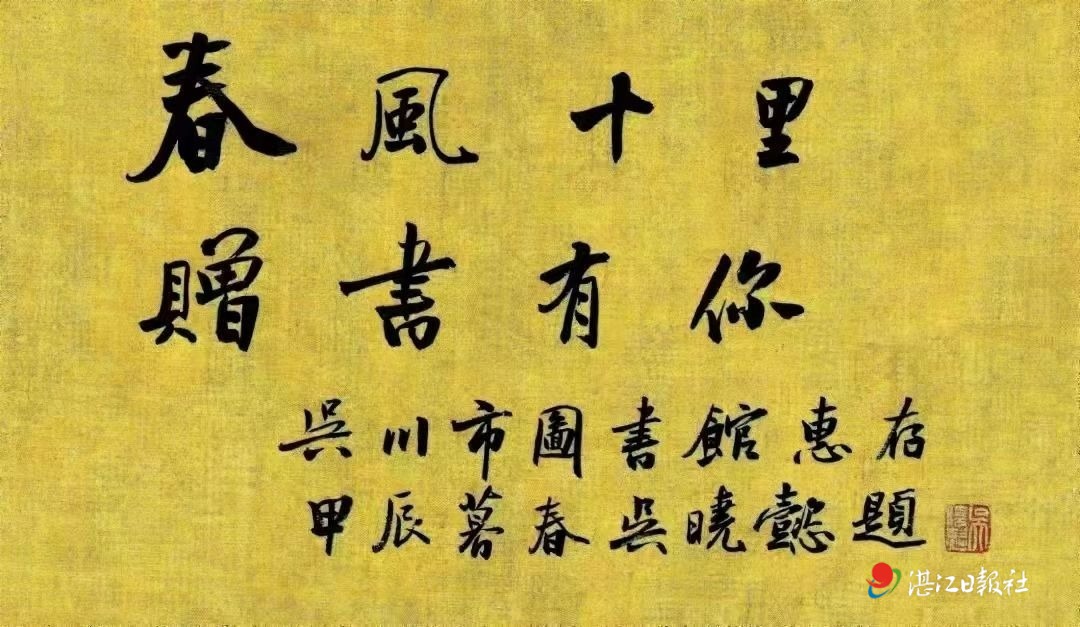 春風十里
贈書有你
吳川市圖書館惠存
甲辰暮春吳曉懿題
湛江日報社